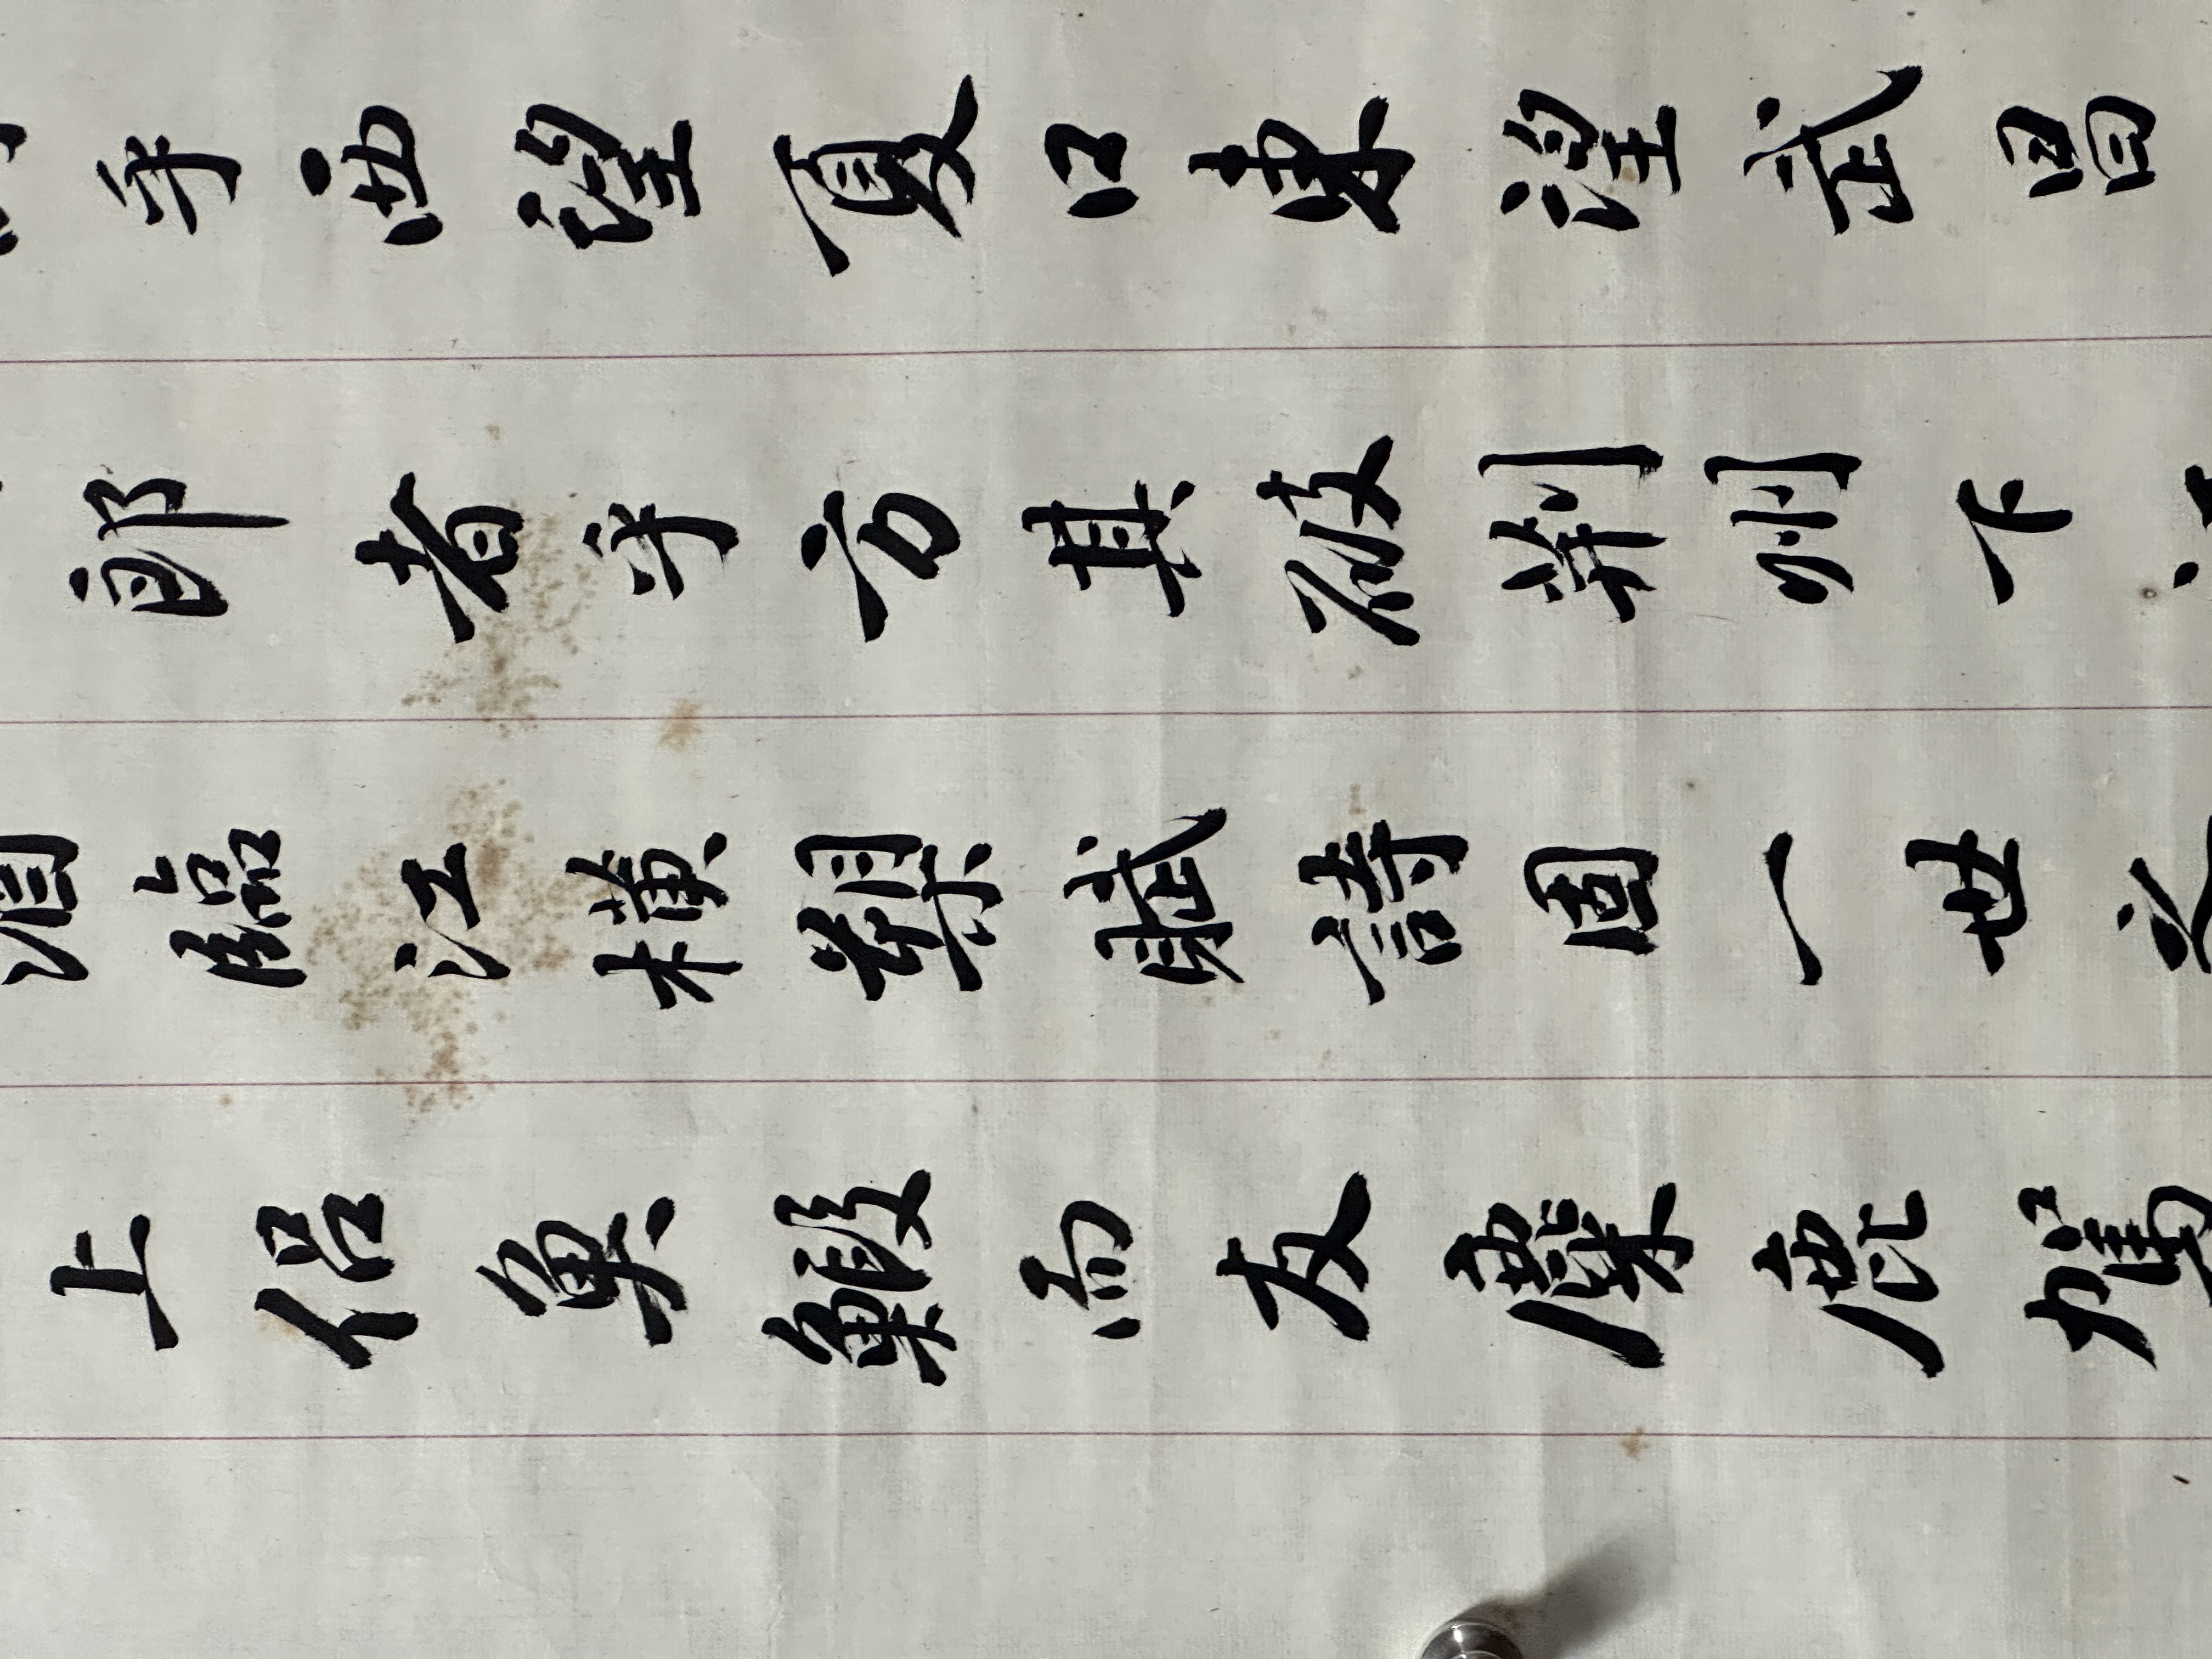 乎西望夏口東望武昌
郎者乎方其破荊州下
酒臨江橫槊賦詩固一世之
上侶魚鰕而友麋鹿駕